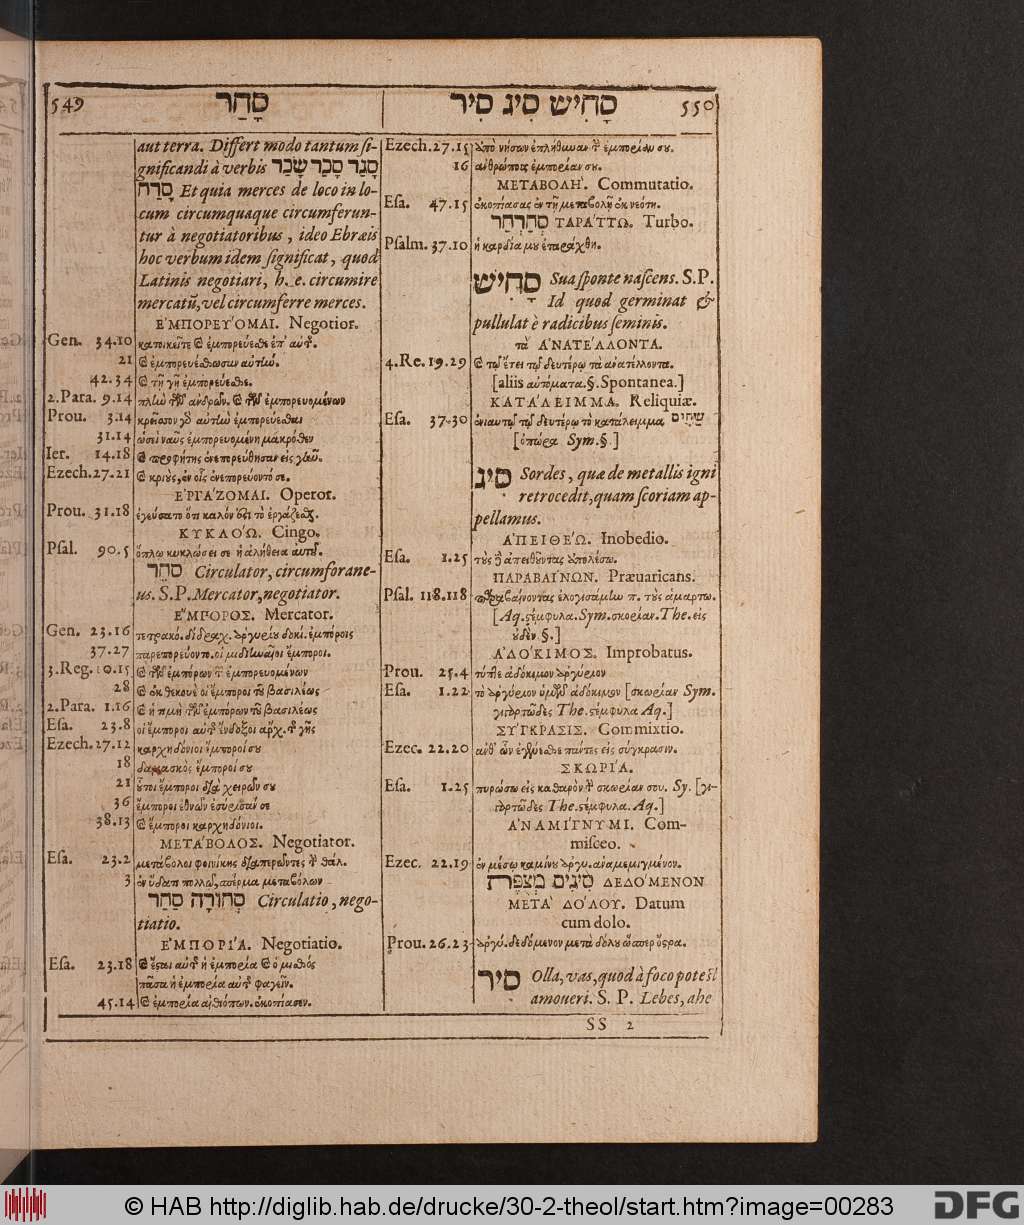 549 סָחַר
aut terra. Differt modo tantum si-
gnificandi à verbis סָגַר סָכַר שָׂכַר
סָרַח Et quia merces de loco in lo-
cum circumquaque circumferun-
tur à negotiatoribus, ideo Ebræis
hoc verbum idem significat, quod
Latinis negotiari, h. e. circumire
mercatū, vel circumferre merces.
ἘΜΠΟΡΕΎΟΜΑΙ. Negotior.
Gen. 34.10 κατοικεῖτε καὶ ἐμπορεύεσθε ἐπ' αὐτῆς.
21 καὶ ἐμπορευέσθωσαν αὐτήν.
42.34 καὶ τῇ γῇ ἐμπορεύεσθε.
2.Para. 9.14 πλὴν τῶν ἀνδρῶν. καὶ τῶν ἐμπορευομένων
Prou. 3.14 κρεῖσσον γὰρ αὐτὴν ἐμπορεύεσθαι
31.14 ὡσεὶ ναῦς ἐμπορευομένη μακρόθεν
Ier. 14.18 καὶ προφήτης ἐνεπορεύθησαν εἰς γῆν.
Ezech.27.21 καὶ κριοὺς, ἐν οἷς ἐνεπορεύοντό σε.
ἘΡΓΆΖΟΜΑΙ. Operor.
Prou. 31.18 ἐγεύσατο ὅτι καλόν ἐστι τὸ ἐργάζεσθαι.
ΚΥΚΛΌΩ. Cingo.
Psal. 90.5 ὅπλῳ κυκλώσει σε ἡ ἀλήθεια αὐτοῦ.
סֹחֵר Circulator, circumforane-
us. S.P. Mercator, negotiator.
ἜΜΠΟΡΟΣ. Mercator.
Gen. 23.16 τετρακό. δίδραχ. ἀργυρίου δοκί. ἐμπόροις
37.27 παρεπορεύοντο. οἱ μαδιηναῖοι ἔμποροι.
3.Reg. 10.15 καὶ τῶν ἐμπόρων τῶν ἐμπορευομένων
28 καὶ ἐκ θεκουὲ οἱ ἔμποροι τοῦ βασιλέως
2.Para. 1.16 καὶ ἡ τιμὴ τῶν ἐμπόρων τοῦ βασιλέως
Esa. 23.8 οἱ ἔμποροι αὐτῆς ἔνδοξοι ἄρχ. τῆς γῆς
Ezech.27.12 καρχηδόνιοι ἔμποροί σου
18 δαμασκὸς ἔμπορός σου
21 οὗτοι ἔμποροι διὰ χειρῶν σου
36 ἔμποροι ἐθνῶν ἐσύρισάν σε
38.13 καὶ ἔμποροι καρχηδόνιοι.
ΜΕΤΆΒΟΛΟΣ. Negotiator.
Esa. 23.2 μετάβολοι φοινίκης διαπερῶντες τὴν θάλ.
3 ἐν ὕδατι πολλῷ, σπέρμα μεταβόλων
סְחוֹרָה סַחַר Circulatio, nego-
tiatio.
ἘΜΠΟΡΊΑ. Negotiatio.
Esa. 23.18 καὶ ἔσται αὐτῆς ἡ ἐμπορία καὶ ὁ μισθός
πᾶσα ἡ ἐμπορία αὐτῆς φαγεῖν.
45.14 καὶ ἐμπορία αἰθιόπων. ἐκοπίασεν.
סָחִישׁ סִיג סִיר 550
Ezech.27.15 ἀπὸ νήσων ἐπλήθυναν τὴν ἐμπορίαν σου.
16 ἀνθρώπους ἐμπορίαν σου.
ΜΕΤΑΒΟΛΉ. Commutatio.
Esa. 47.15 ἐκοπίασας ἐν τῇ μεταβολῇ ἐκ νεότη.
סְחַרְחַר ΤΑΡΆΤΤΩ. Turbo.
Psalm.37.10 ἡ καρδία μου ἐταράχθη.
סָחִישׁ Sua sponte nascens. S.P.
Id quod germinat &
pullulat è radicibus seminis.
τὰ ἈΝΑΤΈΛΛΟΝΤΑ.
4.Re. 19.29 καὶ τῷ ἔτει τῷ δευτέρῳ τὰ ἀνατέλλοντα.
[aliis αὐτόματα. §. Spontanea.]
ΚΑΤΆΛΕΙΜΜΑ. Reliquiæ.
Esa. 37.30 ἐνιαυτῷ τῷ δευτέρῳ τὸ κατάλειμμα שָׁחִיס
[ὀπώρα Sym. §.]
סִיג Sordes, quæ de metallis igni
retrocedit, quam scoriam ap-
pellamus.
ἈΠΕΙΘΈΩ. Inobedio.
Esa. 1.25 τοὺς δὲ ἀπειθοῦντας ἀπολέσω.
ΠΑΡΑΒΑΊΝΩΝ. Præuaricans.
Psal. 118.118 παραβαίνοντας ἐλογισάμην π. τοὺς ἁμαρτω.
[Aq. στέμφυλα. Sym. σκορίαν. The. εἰς
οὐδέν §.]
ἈΔΌΚΙΜΟΣ. Improbatus.
Prou. 25.4 τύπτε ἀδόκιμον ἀργύριον
Esa. 1.22 τὸ ἀργύριον ὑμῶν ἀδόκιμον [σκωρίαν Sym.
γιγαρτῶδες The. στέμφυλα Aq.]
ΣΎΓΚΡΑΣΙΣ. Commixtio.
Ezec. 22.20 ἀνθ' ὧν ἐγένεσθε πάντες εἰς σύγκρασιν.
ΣΚΩΡΊΑ.
Esa. 1.25 πυρώσω εἰς καθαρὸν τὴν σκωρίαν σου. Sy. [γι-
γαρτῶδες The. στέμφυλα. Aq.]
ἈΝΑΜΊΓΝΥΜΙ. Com-
misceo.
Ezec. 22.19 ἐν μέσῳ καμίνου ἀργυ. ἀναμεμιγμένον.
סִיגִים מְצֻפֶּה ΔΕΔΟΜΕΝΟΝ
ΜΕΤᾺ ΔΌΛΟΥ. Datum
cum dolo.
Prou. 26.23 ἀργύ. δεδόμενον μετὰ δόλου ὥσπερ ὄστρα.
סִיר Olla, vas, quod à foco potest
amoueri. S. P. Lebes, ahe
SS 2
© HAB http://diglib.hab.de/drucke/30-2-theol/start.htm?image=00283
DFG